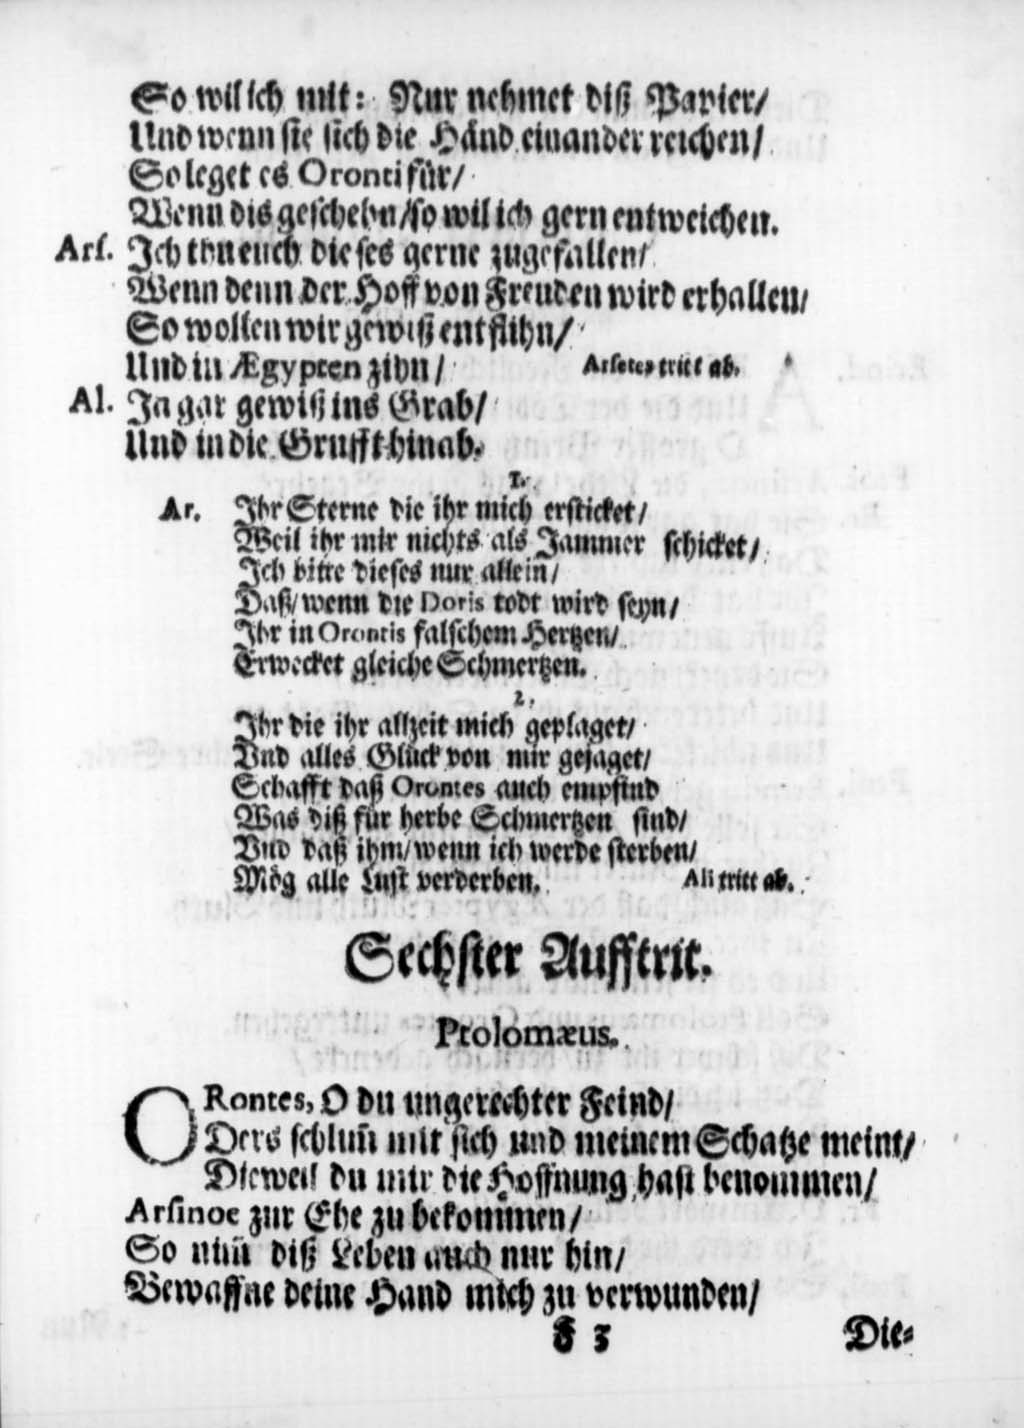 So wil ich mit: Nur nehmet diß Papier/
Und wenn sie sich die Händ einander reichen/
So leget es Oronti für/
Wenn dis geschehn/so wil ich gern entweichen.
Ars. Jch thu euch dieses gerne zugefallen/
Wenn denn der Hoff von Freuden wird erhallen/
So wollen wir gewiß entflihn/
Und in Ægypten zihn/ Arsetes tritt ab.
Al. Ja gar gewiß ins Grab/
Und in die Grufft hinab.
1.
Ar. Jhr Sterne die ihr mich ersticket/
Weil ihr mir nichts als Jammer schicket/
Jch bitte dieses nur allein/
Daß/wenn die Doris todt wird seyn/
Jhr in Orontis falschem Hertzen/
Erwecket gleiche Schmertzen.
2.
Jhr die ihr allzeit mich geplaget/
Vnd alles Glück von mir gejaget/
Schafft daß Orontes auch empfind
Was diß für herbe Schmertzen sind/
Vnd daß ihm/wenn ich werde sterben/
Mög alle Lust verderben. Ali tritt ab.
Sechster Aufftrit.
Ptolomæus.
ORontes, O du ungerechter Feind/
Ders schlim̃ mit sich und meinem Schatze meint/
Dieweil du mir die Hoffnung hast benommen/
Arsinoe zur Ehe zu bekommen/
So nim̃ diß Leben auch nur hin/
Bewaffne deine Hand mich zu verwunden/
F 3 Die-